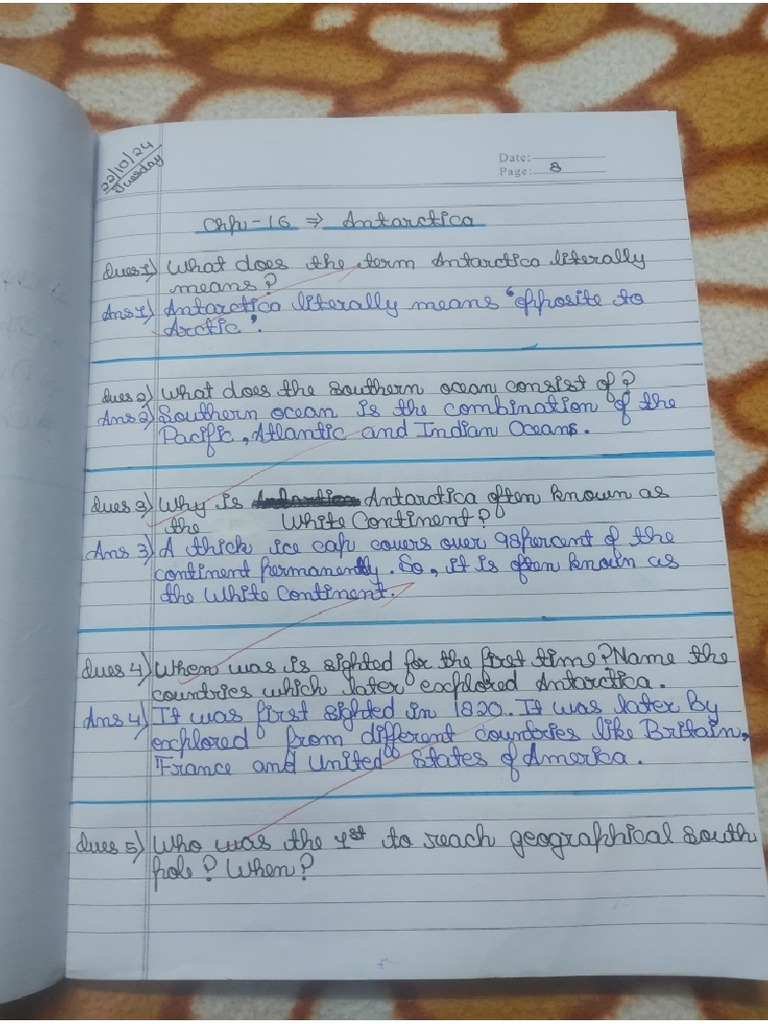 22/10/24
Tuesday
Date:
Page: 8
Chp-16 ⇒ Antarctica
Ques 1) What does the term Antarctica literally
means?
Ans 1) Antarctica literally means 'opposite to
Arctic'.
Ques 2) What does the southern ocean consist of?
Ans 2) Southern ocean is the combination of the
Pacific, Atlantic and Indian Oceans.
Ques 3) Why is Antarctica often known as
the White Continent?
Ans 3) A thick ice cap covers over 98 percent of the
continent permanently. So, it is often known as
the White Continent.
Ques 4) When was is sighted for the first time? Name the
countries which later explored Antarctica.
Ans 4) It was first sighted in 1820. It was later by
explored from different countries like Britain,
France and United States of America.
Ques 5) Who was the 1st to reach geographical south
pole? When?